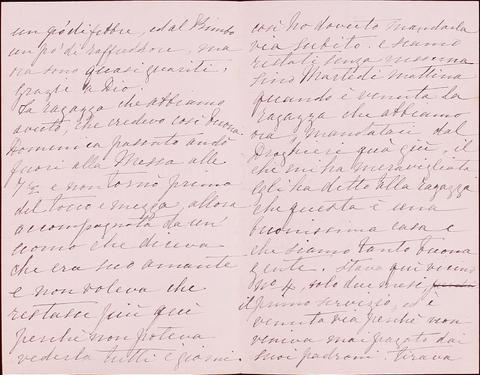 un pò di febbre, ed al Bimbo
un pò di raffreddore, ma
ora sono quasi guariti,
grazie a Dio.
La ragazza che abbiamo
avuto, che credevo così buona
Domenica passata andò
fuori alla Messa alle
7½ e non tornò prima
del tocco e mezzo, allora
accompagnata da un'
uomo che diceva
che era suo amante
e non voleva che
restasse più quì
perchè non poteva
vederla tutti i giorni.
così ho dovuto mandarla
via subito. e siamo
restati senza nessuna
sino Martedì mattina
quando è venuta la
ragazza che abbiamo
ora, mandataci dal
Droghiere quaggiù, il
che mi ha meravigliata
Egli ha detto alla ragazza
che questa è una
buonissima casa e
che siamo tanto buona
gente. Stava quì vicino
No 4, solo due mesi,
il primo servizio, ed è
venuta via perchè non
veniva mai pagata dai
suoi padroni. Tirava